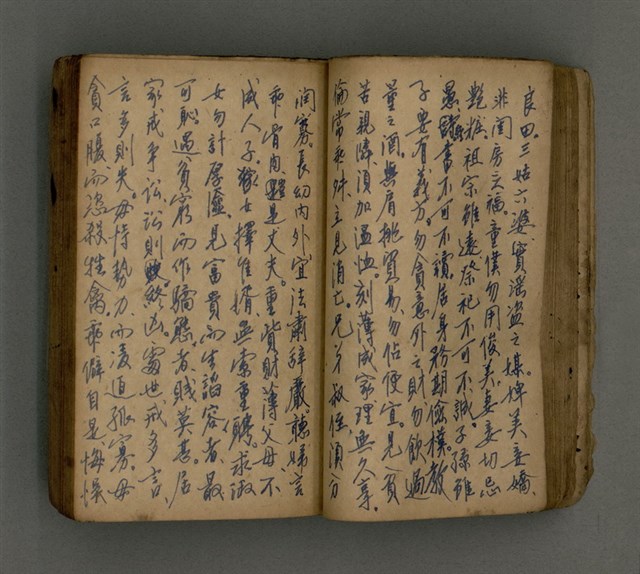 良田。三姑六婆、實淫盜之媒、婢美妾嬌、
非閨房之福、童僕勿用俊美、妻妾切忌
艷粧、祖宗雖遠、祭祀不可不誠、子孫雖
愚、讀書不可不讀。居身務期儉樸、教
子要有義方。勿貪意外之財、勿飲過
量之酒。與肩挑貿易、勿佔便宜。見貧
苦親隣、須加溫恤。刻薄成家、理無久享。
倫常乖舛、立見消亡。兄弟叔侄、須分
潤寡。長幼內外、宜法肅辭嚴。聽婦言
乖骨肉、豈是丈夫。重貲財、薄父母、不
成人子。嫁女擇佳婿、無索重聘。求淑
女勿計厚奩。見富貴而生諂容者、最
可恥。遇貧窮而作驕態者、賤莫甚。居
家戒爭訟、訟則終凶。處世戒多言、
言多則失。毋恃勢力、而凌逼孤寡。毋
貪口腹、而恣殺牲禽。乖僻自是、悔悞